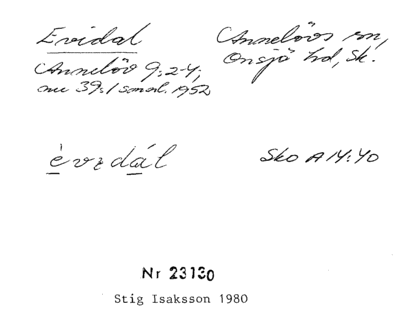 Evidal
Annelövs sn,
Onsjö hd, Sk.
Annelöv 9:2-4,
nu 39:1 saml. 1952
èvɪdál
Sko A 14:40
Nr 23130
Stig Isaksson 1980